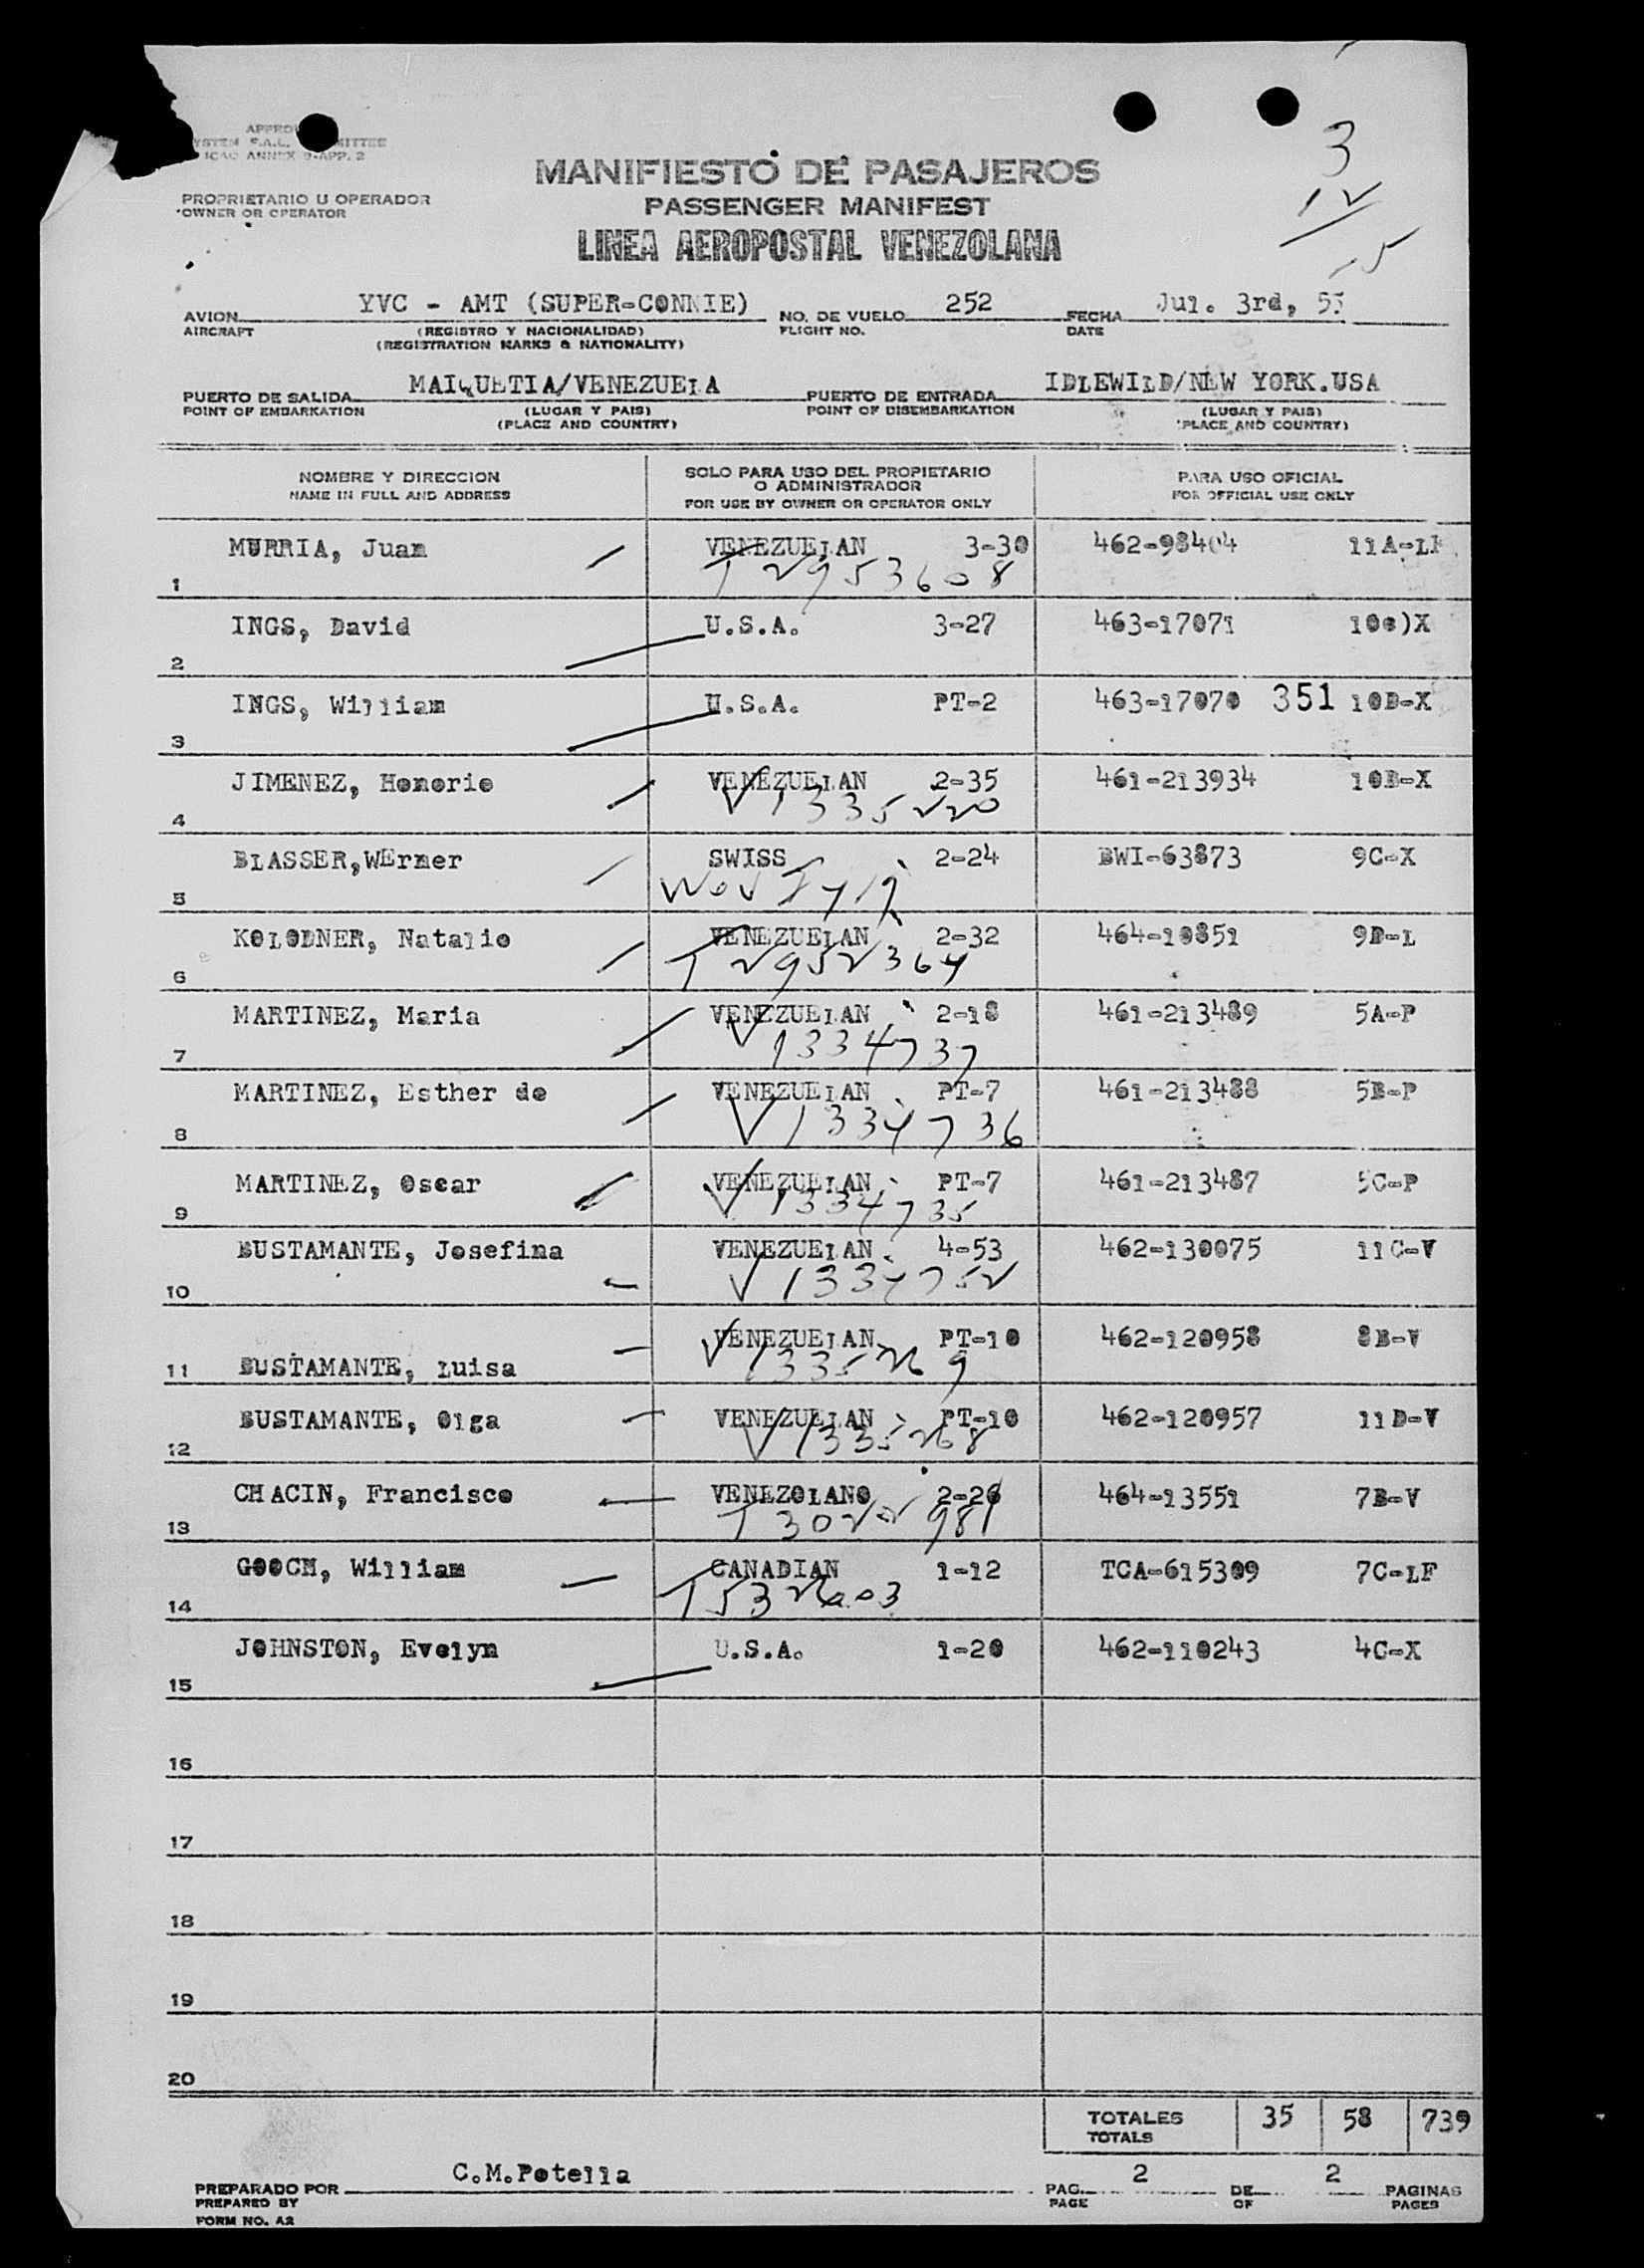 3
12
15
MANIFIESTO DE PASAJEROS
PASSENGER MANIFEST
LINEA AEROPOSTAL VENEZOLANA
ICAO ANNEX 9-APP. 2
PROPRIETARIO U OPERADOR
OWNER OR OPERATOR
AVION YVC - AMT (SUPER-CONNIE) NO. DE VUELO 252 FECHA Jul. 3rd, 55
AIRCRAFT (REGISTRO Y NACIONALIDAD) FLIGHT NO. DATE
(REGISTRATION MARKS & NATIONALITY)
PUERTO DE SALIDA MAIQUETIA/VENEZUELA PUERTO DE ENTRADA IDLEWILD/NEW YORK.USA
POINT OF EMBARKATION (LUGAR Y PAIS) POINT OF DISEMBARKATION (LUGAR Y PAIS)
(PLACE AND COUNTRY) (PLACE AND COUNTRY)
NOMBRE Y DIRECCION SOLO PARA USO DEL PROPIETARIO O ADMINISTRADOR PARA USO OFICIAL
NAME IN FULL AND ADDRESS FOR USE BY OWNER OR OPERATOR ONLY FOR OFFICIAL USE ONLY
MURRIA, Juan VENEZUELAN 3-30 462-98404 11A-LF
1 T 2953608
INGS, David U.S.A. 3-27 463-17071 10c)X
2
INGS, William U.S.A. PT-2 463-17070 351 10D-X
3
JIMENEZ, Honorio VENEZUELAN 2-35 461-213934 10B-X
4 V 1335220
BLASSER,WErner SWISS 2-24 BWI-63873 9C-X
5
KOLODNER, Natalio VENEZUELAN 2-32 464-10851 9D-L
6 T 2952364
MARTINEZ, Maria VENEZUELAN 2-18 461-213489 5A-P
7 V 1334737
MARTINEZ, Esther de VENEZUELAN PT-7 461-213488 5B-P
8 V 1334736
MARTINEZ, Oscar VENEZUELAN PT-7 461-213487 5C-P
9 V 1334735
BUSTAMANTE, Josefina VENEZUELAN 4-53 462-130075 11C-V
10 V 1334752
VENEZUELAN PT-10 462-120958 8B-V
11 BUSTAMANTE, Luisa V 1335269
BUSTAMANTE, Olga VENEZUELAN PT-10 462-120957 11D-V
12 V 1335268
CHACIN, Francisco VENEZOLANO 2-26 464-13551 7B-V
13 T 3022981
GOOCH, William CANADIAN 1-12 TCA-615309 7C-LF
14
JOHNSTON, Evelyn U.S.A. 1-20 462-110243 4C-X
15
16
17
18
19
20
TOTALES 35 58 739
TOTALS
PREPARADO POR C.M.Potella PAG. 2 DE 2 PAGINAS
PREPARED BY PAGE OF PAGES
FORM NO. A2